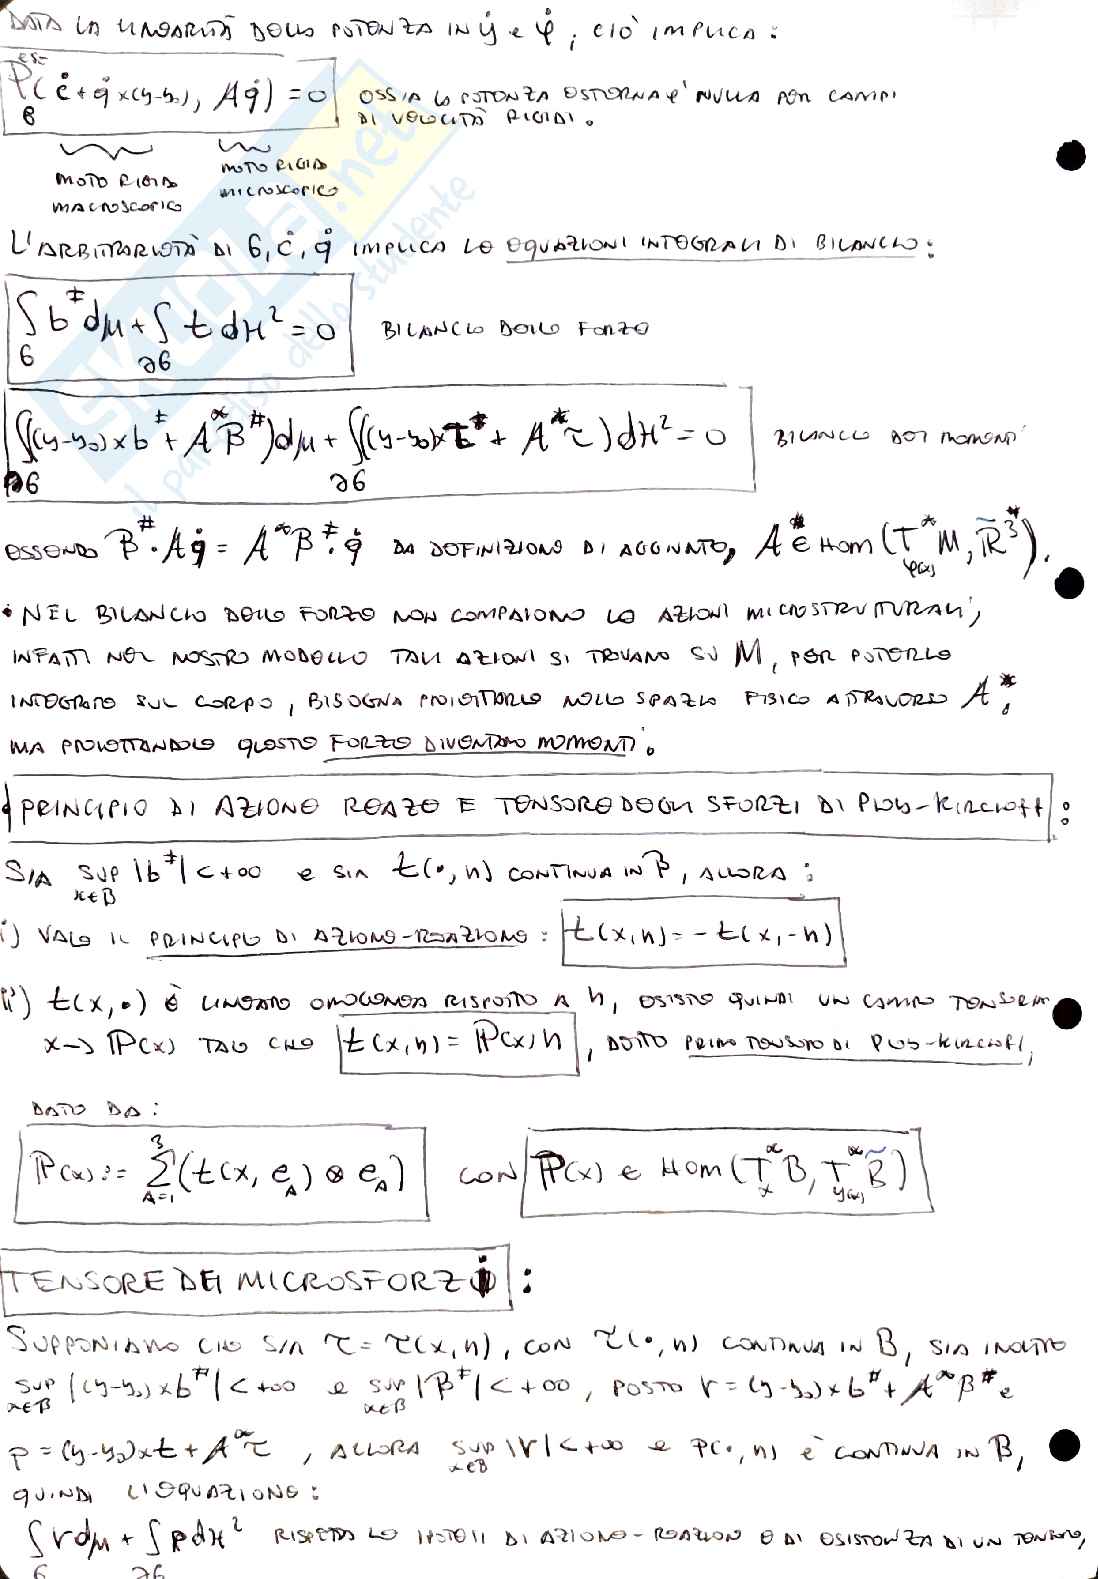 DATA LA LINEARITÀ DELLA POTENZA IN ẏ e φ̇, CIÒ IMPLICA:
P^est_B(ċ + q̇ × (y-y₀), Aq̇) = 0 OSSIA LA POTENZA ESTERNA È NULLA PER CAMPI
DI VELOCITÀ RIGIDI.
MOTO RIGIDO
MACROSCOPICO
MOTO RIGIDO
MICROSCOPICO
L'ARBITRARIETÀ DI б, ċ, q̇ IMPLICA LE EQUAZIONI INTEGRALI DI BILANCIO:
∫_б b^‡ dμ + ∫_∂б t dH² = 0 BILANCIO DELLE FORZE
∫((y-y₀) × b^‡ + A^* β^#) dμ + ∫_∂б ((y-y₀) × t^# + A^* τ) dH² = 0 BILANCIO DEI MOMENTI
ESSENDO β^# · Aq̇ = A^* β^‡ · q̇ DA DEFINIZIONE DI AGGIUNTO, A^* ∈ Hom(T^*_φ(x) M, R̃^3*).
• NEL BILANCIO DELLE FORZE NON COMPAIONO LE AZIONI MICROSTRUTTURALI,
INFATTI NEL NOSTRO MODELLO TALI AZIONI SI TROVANO SU M, PER POTERLE
INTEGRARE SUL CORPO, BISOGNA PROIETTARLE NELLO SPAZIO FISICO ATTRAVERSO A^*,
MA PROIETTANDOLE QUESTE FORZE DIVENTANO MOMENTI.
PRINCIPIO DI AZIONE REAZE E TENSORE DEGLI SFORZI DI PIOLA-KIRCIOFF:
SIA sup_{x∈B} |b^‡| < +∞ e SIA t(•, n) CONTINUA IN B, ALLORA:
i) VALE IL PRINCIPIO DI AZIONE-REAZIONE: t(x, n) = - t(x, -n)
ii) t(x, •) È LINEARE OMOGENEA RISPETTO A n, ESISTE QUINDI UN CAMPO TENSORIALE
x → P(x) TALE CHE t(x, n) = P(x) n, DETTO PRIMO TENSORE DI PIOLA-KIRCIOFF,
DATO DA:
P(x) := Σ_{A=1}^3 (t(x, e_A) ⊗ e_A) CON P(x) ∈ Hom(T^*_x B, T^*_y(x) B̃)
TENSORE DEI MICROSFORZI:
SUPPONIAMO CHE SIA τ = τ(x, n), CON τ(•, n) CONTINUA IN B, SIA INOLTRE
sup_{x∈B} |(y-y₀) × b^‡| < +∞ e sup_{x∈B} |β^‡| < +∞, POSTO r = (y-y₀) × b^# + A^* β^# e
p = (y-y₀) × t + A^* τ, ALLORA sup_{x∈B} |r| < +∞ e p(•, n) È CONTINUA IN B,
QUINDI L'EQUAZIONE:
∫_б r dμ + ∫_∂б p dH² RISPETTA LE IPOTESI DI AZIONE-REAZIONE E DI ESISTENZA DI UN TENSORE,
SKUOLA.net
il paradiso dello studente